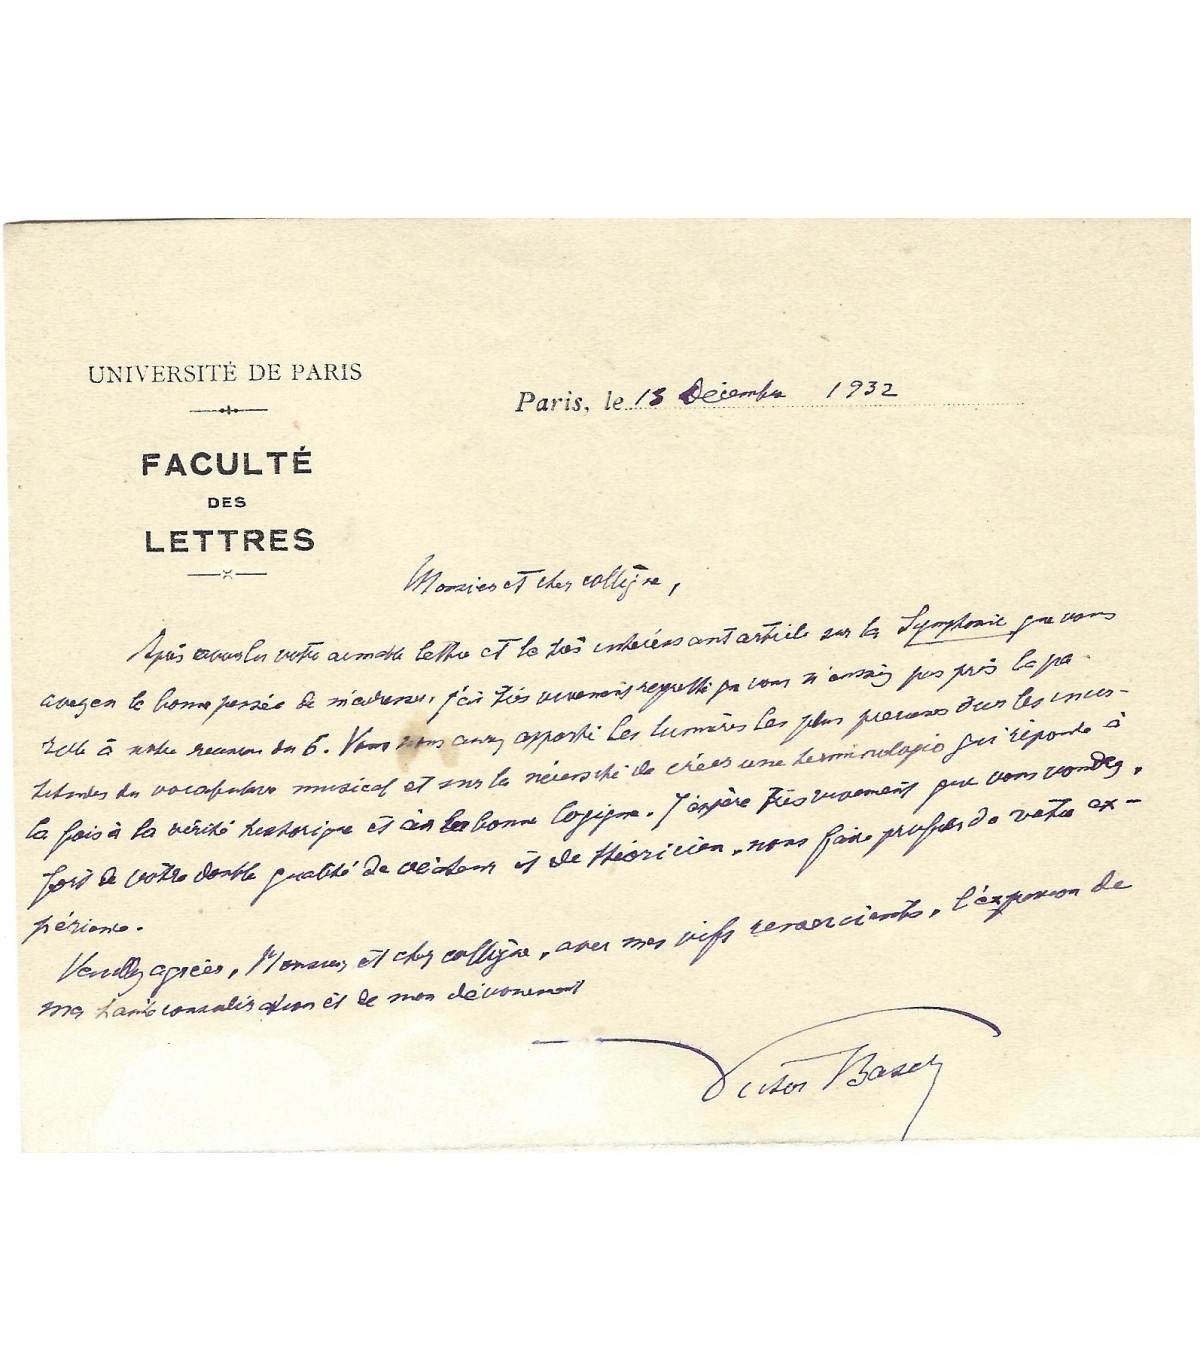 UNIVERSITÉ DE PARIS
Paris, le 13 Décembre 1932
FACULTÉ
DES
LETTRES
Monsieur et cher collègue,
Après avoir lu votre aimable lettre et le très intéressant article sur la Symphonie que vous
avez eu la bonne pensée de m'adresser, j'ai très vivement regretté que vous n'ayez pas pris la pa-
role à notre réunion du 6. Vous nous auriez apporté les lumières les plus précieuses sur les incer-
titudes du vocabulaire musical et sur la nécessité de créer une terminologie qui réponde à
la fois à la vérité historique et à la bonne logique. J'espère très vivement que vous voudrez,
fort de votre double qualité de créateur et de théoricien, nous faire profiter de votre ex-
périence.
Veuillez agréer, Monsieur et cher collègue, avec mes vifs remerciements, l'expression de
ma haute considération et de mon dévouement
Victor Basch